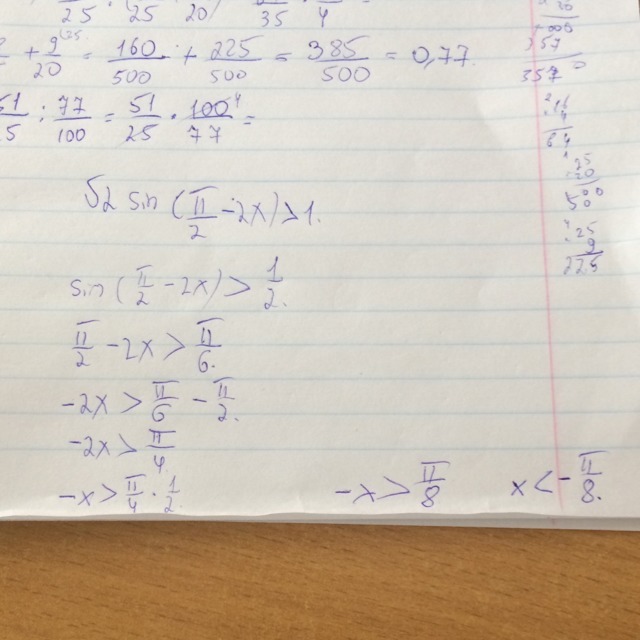 25 25 20 35 4
+ 9/20 = 160/500 + 225/500 = 385/500 = 0,77.
51/25 : 77/100 = 51/25 · 100/77 =
√2 sin (π/2 - 2x) > 1.
sin (π/2 - 2x) > 1/2.
π/2 - 2x > π/6.
-2x > π/6 - π/2.
-2x > π/4.
-x > π/4 · 1/2. -x > π/8 x < - π/8.
357
357
64
25
20
500
25
9
225